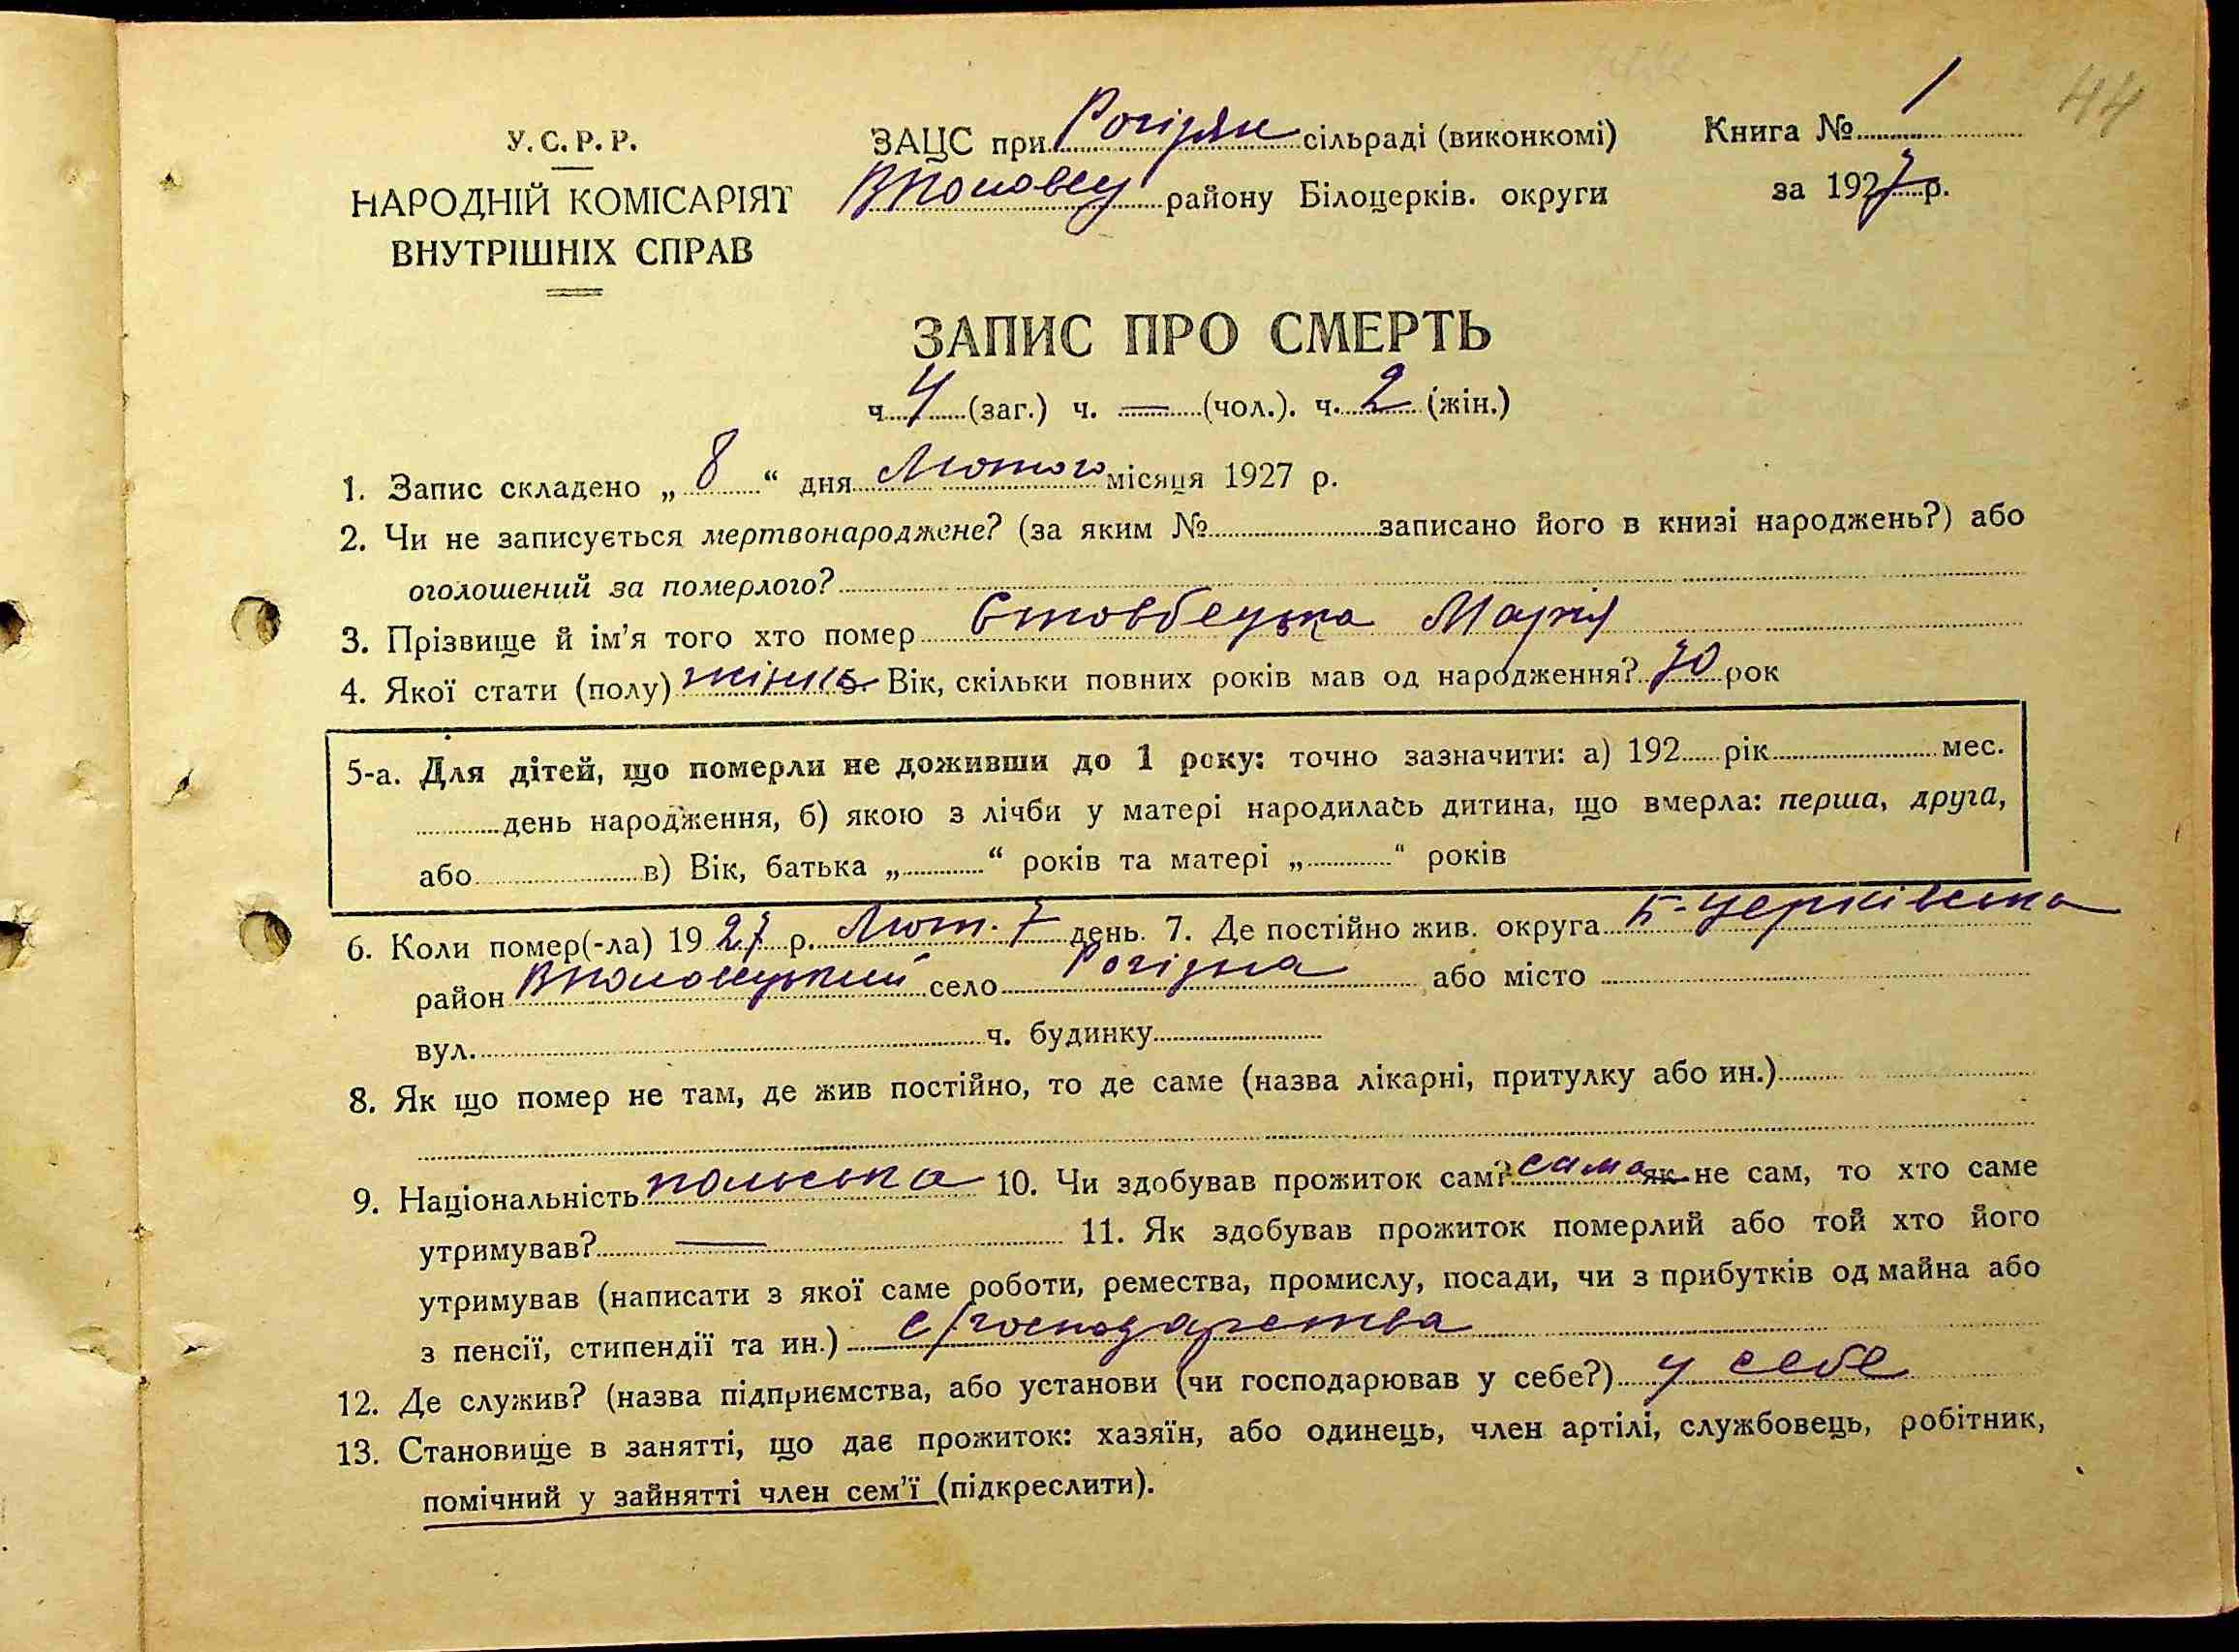 44
У. С. Р. Р.
НАРОДНІЙ КОМІСАРІЯТ
ВНУТРІШНІХ СПРАВ
ЗАЦС при Рогізян сільраді (виконкомі)
ВПоловец району Білоцерків. округи
Книга № 1
за 1927 р.
ЗАПИС ПРО СМЕРТЬ
ч. 4 (заг.) ч. — (чол.). ч. 2 (жін.)
1. Запис складено „ 8 “ дня Лютого місяця 1927 р.
2. Чи не записується мертвонароджене? (за яким № записано його в книзі народжень?) або
оголошений за померлого?
3. Прізвище й ім’я того хто помер Стовбецька Марія
4. Якої стати (полу) Вік, скільки повних років мав од народження? 70 рок
5-а. Для дітей, що померли не доживши до 1 року: точно зазначити: а) 192 рік мес.
день народження, б) якою з лічби у матері народилась дитина, що вмерла: перша, друга,
або в) Вік, батька „ “ років та матері „ “ років
6. Коли помер(-ла) 1927 р. Лют. 7 день. 7. Де постійно жив. округа Б-Церківська
район ВПоловецький село Рогізна або місто
вул. ч. будинку
8. Як що помер не там, де жив постійно, то де саме (назва лікарні, притулку або ин.)
9. Національність польська 10. Чи здобував прожиток сам? сама як не сам, то хто саме
утримував? — 11. Як здобував прожиток померлий або той хто його
утримував (написати з якої саме роботи, ремества, промислу, посади, чи з прибутків од майна або
з пенсії, стипендії та ин.) с/господарства
12. Де служив? (назва підприємства, або установи (чи господарював у себе?) у себе
13. Становище в занятті, що дає прожиток: хазяїн, або одинець, член артілі, службовець, робітник,
помічний у зайнятті член сем’ї (підкреслити).